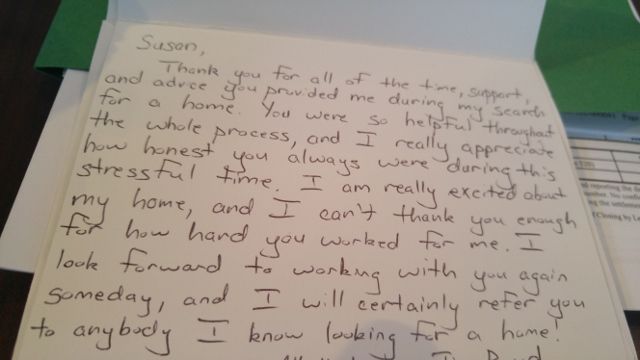 Susan,
Thank you for all of the time, support,
and advice you provided me during my search
for a home. You were so helpful throughout
the whole process, and I really appreciate
how honest you always were during this
stressful time. I am really excited about
my home, and I can't thank you enough
for how hard you worked for me. I
look forward to working with you again
someday, and I will certainly refer you
to anybody I know looking for a home!